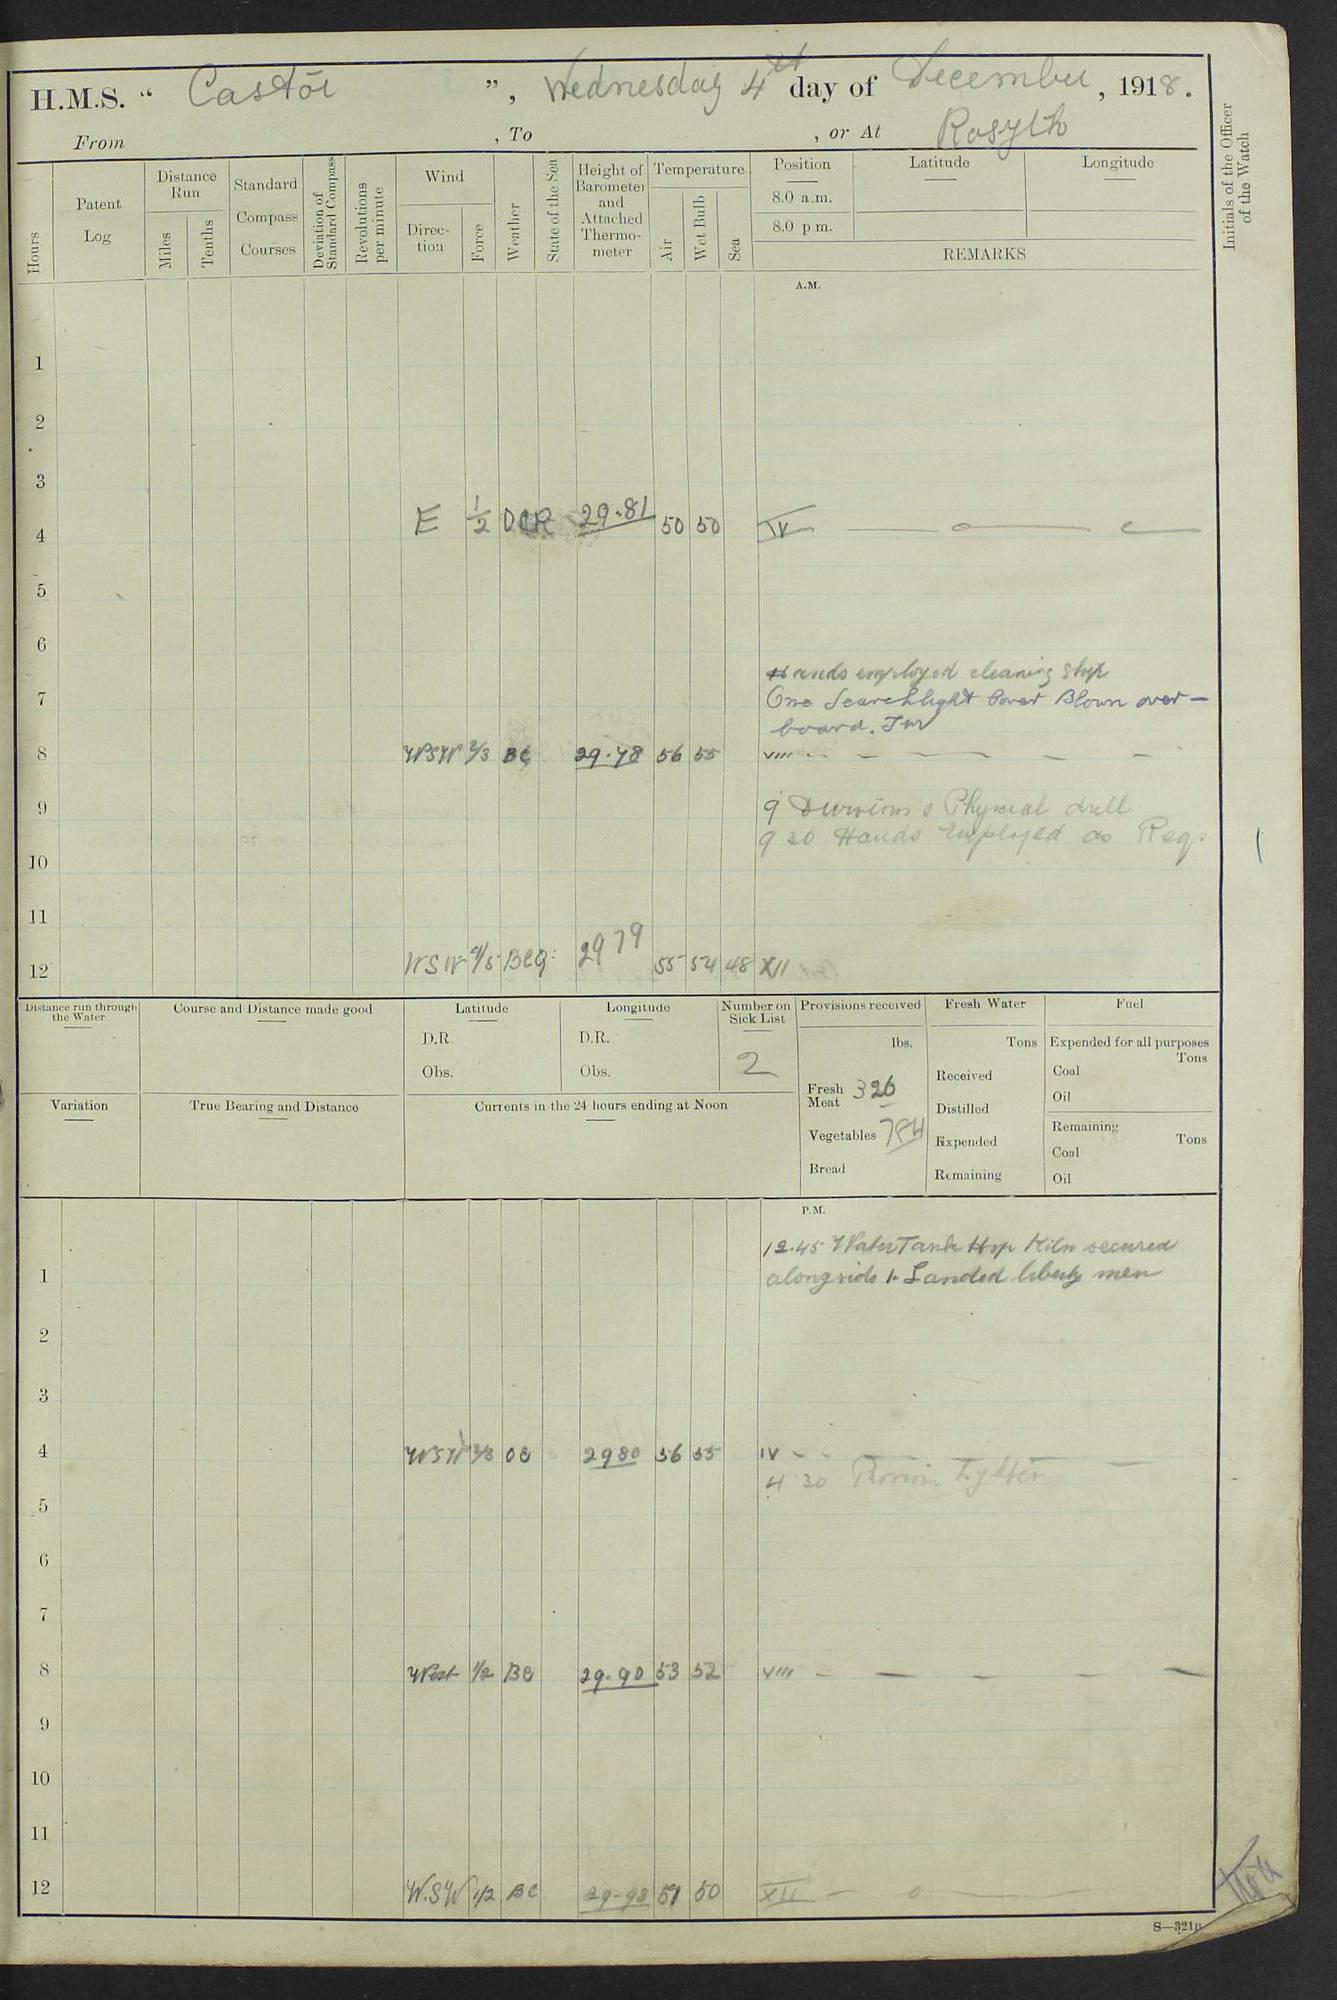 H.M.S. “ Castor ”, Wednesday 4th day of December, 1918.
From , To , or At Rosyth
Initials of the Officer of the Watch
Hours
Patent Log
Distance Run
Miles
Tenths
Standard Compass Courses
Deviation of Standard Compass
Revolutions per minute
Wind
Direction
Force
Weather
State of the Sea
Height of Barometer and Attached Thermometer
Temperature
Air
Wet Bulb
Sea
Position
8.0 a.m.
8.0 p.m.
Latitude
Longitude
REMARKS
A.M.
1
2
3
4 E 1/2 OCR 29.81 50 50 IV
5
6
Hands employed cleaning ship
7 One Searchlight Cover Blown over-
board.
8 WSW 2/3 BC 29.78 56 55 VIII
9 9 Divisions & Physical drill
9 30 Hands Employed as Req.
10
11
12 WSW 4/5 BCQ 29 79 55 54 48 XII
Distance run through the Water
Course and Distance made good
Latitude
D.R.
Obs.
Longitude
D.R.
Obs.
Number on Sick List
2
Provisions received
lbs.
Fresh Meat 326
Vegetables 784
Bread
Fresh Water
Tons
Received
Distilled
Expended
Remaining
Fuel
Expended for all purposes
Tons
Coal
Oil
Remaining
Tons
Coal
Oil
Variation
True Bearing and Distance
Currents in the 24 hours ending at Noon
P.M.
12.45 Water Tank Hop Kiln secured
1 alongside 1. Landed liberty men
2
3
4 WSW 2/3 OC 29 80 56 55 IV
4 30 Lighter
5
6
7
8 West 1/2 BC 29.90 53 52 VIII
9
10
11
12 W.SW 1/2 BC 29.98 51 50 XII